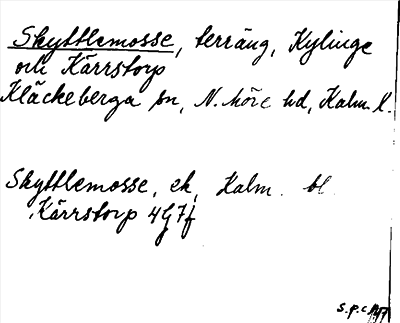 Skyttlemosse, terräng, Kylinge
och Kärrstorp
Kläckeberga sn, N. Möre hd, Kalm. l.
Skyttlemosse, ek, Kalm. bl
Kärrstorp 4G7f
s.p.c.